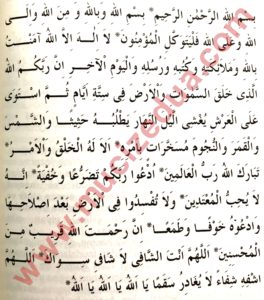 بِسْمِ اللهِ الرَّحْمٰنِ الرَّحِيمِ* بِسْمِ اللهِ وَبِاللهِ وَ مِنَ اللهِ وَاِلَى
اللهِ وَعَلَى اللهِ فَلْيَتَوَكَّلِ الْمُؤْمِنُونَ* لَا اِلٰهَ اِلَّا اللهُ آمَنْتُ
بِاللهِ وَمَلٰئِكَتِهِ وَكُتُبِهِ وَرُسُلِهِ وَالْيَوْمِ الْآخِرِ اِنَّ رَبَّكُمُ اللهُ
الَّذِى خَلَقَ السَّمٰوَاتِ وَالْاَرْضَ فِى سِتَّةِ اَيَّامٍ ثُمَّ اسْتَوَى
عَلَى الْعَرْشِ يُغْشِى الَّيْلَ النَّهَارَ يَطْلُبُهُ حَثِيثًا وَالشَّمْسَ
وَالْقَمَرَ وَالنُّجُومَ مُسَخَّرَاتٍ بِاَمْرِهِ* اَلَا لَهُ الْخَلْقُ وَالْاَمْرُ*
تَبَارَكَ اللهُ رَبُّ الْعَالَمِينَ* اُدْعُوا رَبَّكُمْ تَضَرُّعًا وَخُفْيَةً* اِنَّهُ
لَا يُحِبُّ الْمُعْتَدِينَ* وَلَا تُفْسِدُوا فِى الْاَرْضِ بَعْدَ اِصْلَاحِهَا
وَادْعُوهُ خَوْفًا وَطَمَعًا* اِنَّ رَحْمَتَ اللهِ قَرِيبٌ مِنَ
الْمُحْسِنِينَ* اَللّٰهُمَّ اَنْتَ الشَّافِى لَا شَافِىَ سِوَاكَ اَللّٰهُمَّ
اشْفِهِ شِفَاءً لَا يُغَادِرُ سَقَمًا يَا اَللهُ يَا اَللهُ يَا اَللهُ*
www.mucizedua.com